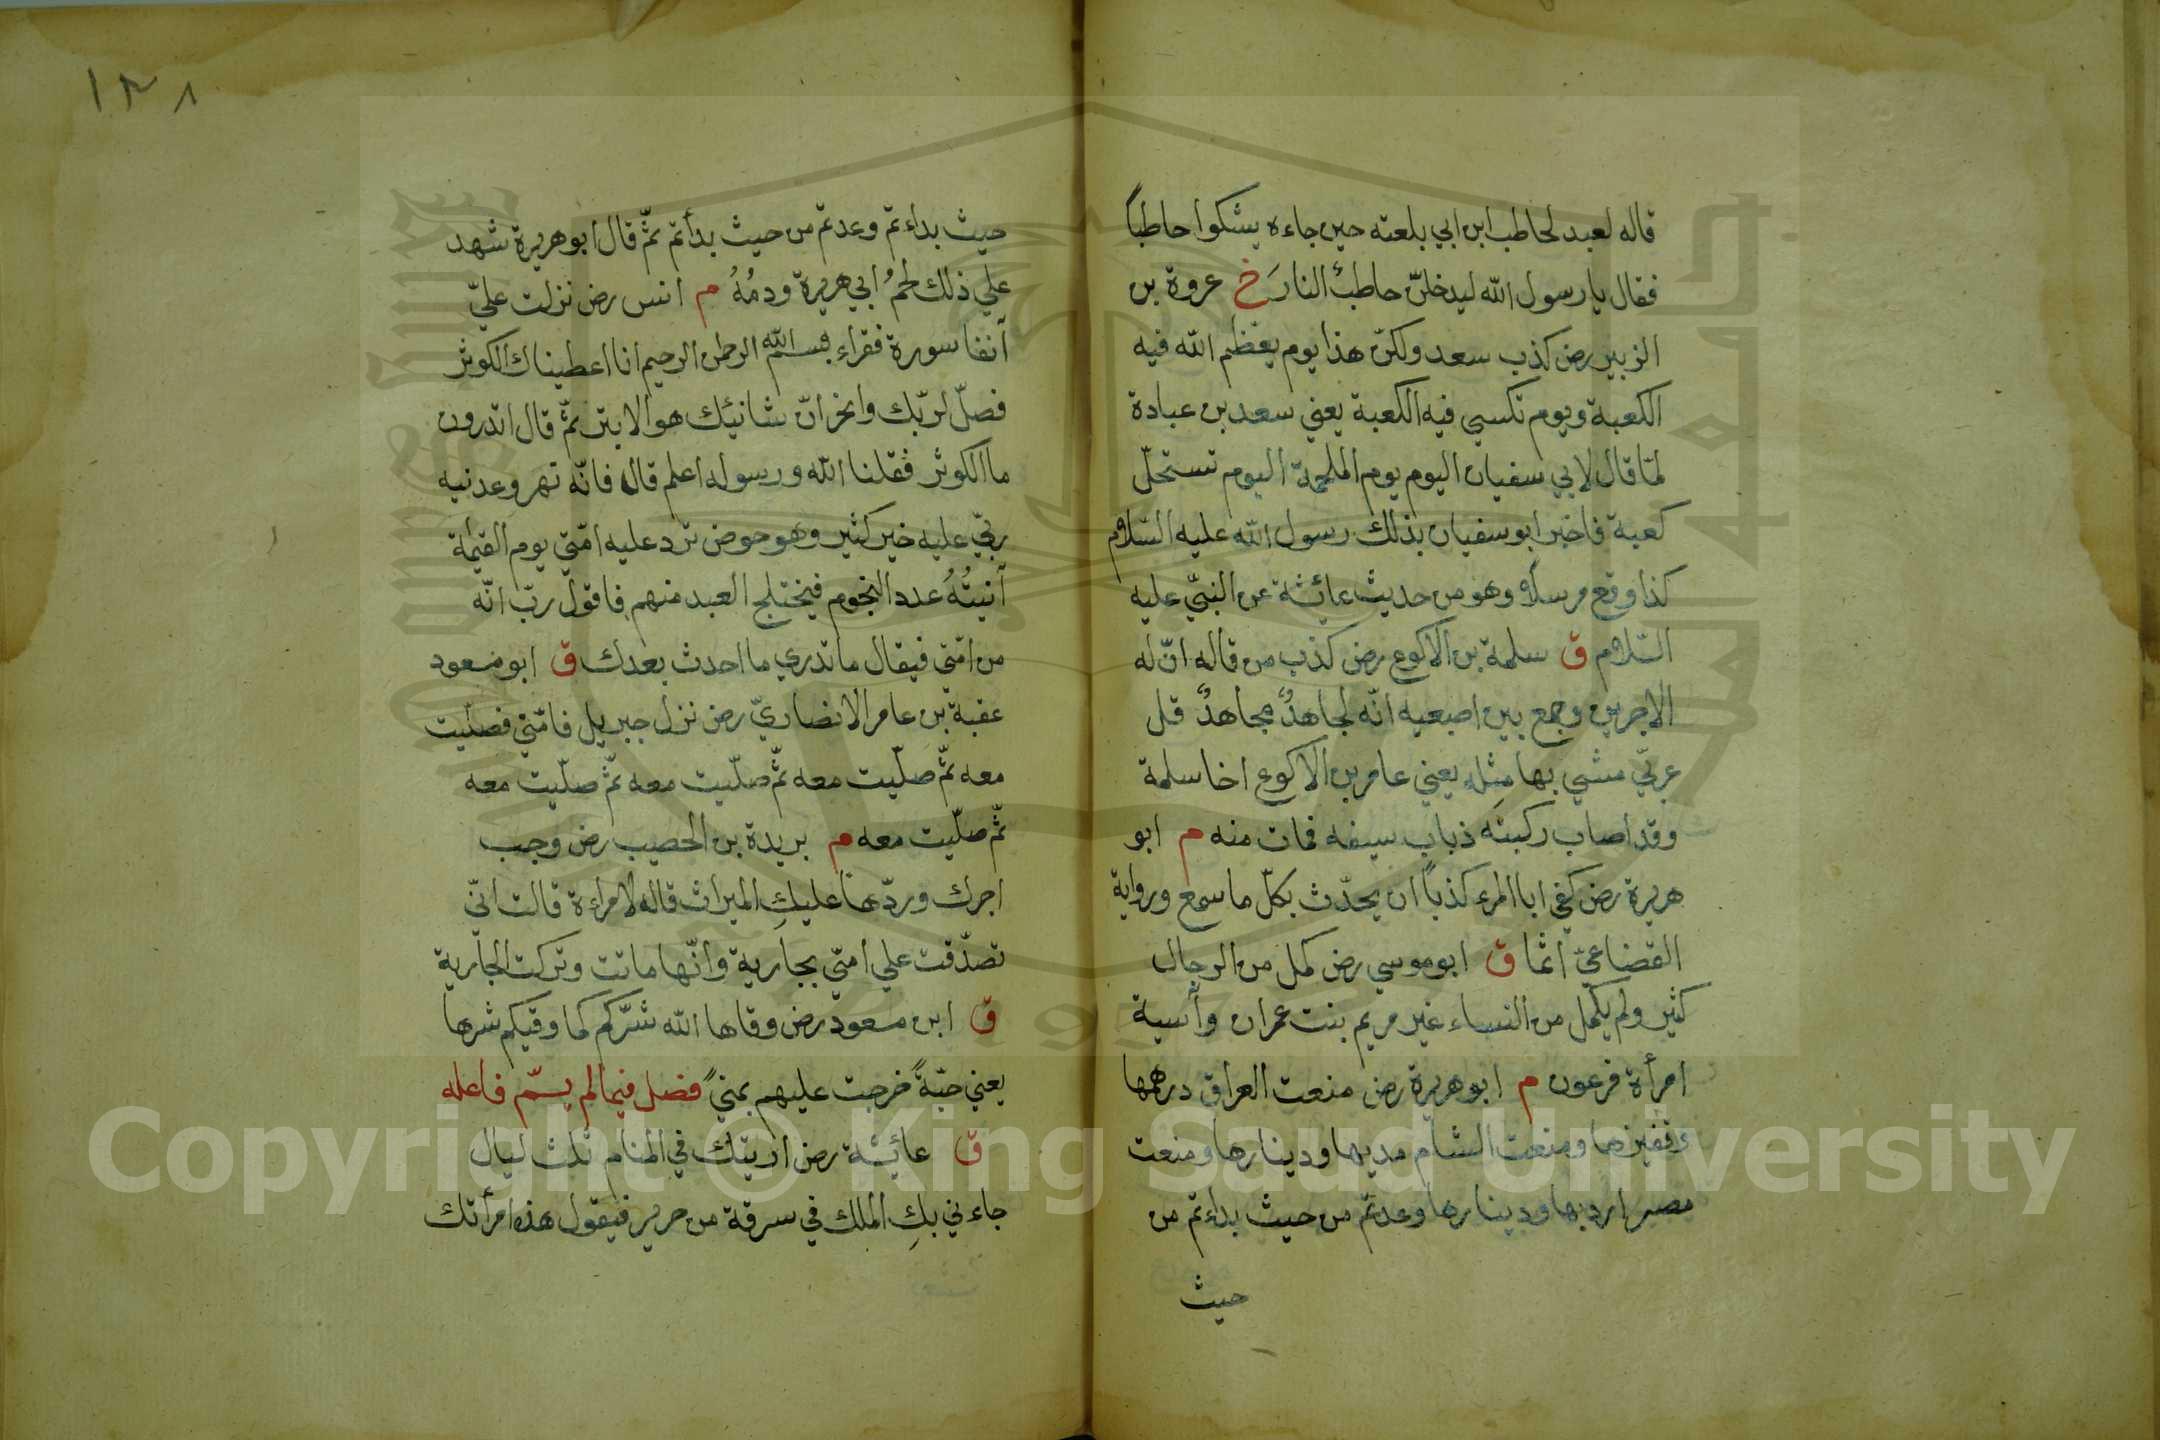 قاله لعبد لحاطب ابن ابي بلعته حين جاءه يشكوا حاطباً
فقال يا رسول الله ليدخلنّ حاطبُ النارَ خ عروة بن
الزبير رض كذب سعد ولكنّ هذا يوم يعظم الله فيه
الكعبة ويوم تكسي فيه الكعبة يعني سعد بن عبادة
لمّا قال لابي سفيان اليوم يوم الملحمة اليوم تستحلّ
كعبة فاخبر ابو سفيان بذلك رسول الله عليه السّلام
كذا وقع مرسلا وهو من حديث عائشة عن النبيّ عليه
السّلام ق سلمة بن الاكوع رض كذب من قاله انّ له
الاجرين وجمع بين اصبعيه انّه لجاهدٌ مجاهدٌ قل
عربيّ مشي بها مثله يعني عامر بن الاكوع اخا سلمة
وقد اصاب ركبته ذباب سيفه فمات منه م ابو
هريرة رض كفي ابا المرء كذباً ان يحدّث بكلّ ما سمع ورواية
القضاعيّ اثما ق ابو موسي رض كمل من الرجال
كثير ولم يكمل من النساء غير مريم بنت عمران وآسية
امرأة فرعون م ابو هريرة رض منعت العراق درهمها
وقفيزها ومنعت الشام مديها ودينارها ومنعت
مصر اردبها ودينارها وعدتم من حيث بداءتم من
حيث
١٣٨
حيث بداءتم وعدتم من حيث بدأتم ثمّ قال ابو هريرة شهد
علي ذلك لحمُ ابي هريرة ودمُهُ م انس رض نزلت عليّ
آنفا سورة فقراء بسم الله الرحمن الرحيم انا اعطيناك الكوثر
فصلّ لربّك وانحر انّ شانئك هو الابتر ثمّ قال اتدرون
ما الكوثر فقلنا الله ورسوله اعلم قال فانّه نهر وعدنيه
ربّي عليه خير كثير وهو حوض ترد عليه امّتي يوم القيمة
آنيتُهُ عدد النجوم فيختلج العبد منهم فاقول ربّ انّه
من امّتي فيقال ما تدري ما احدث بعدك ق ابو مسعود
عقبة بن عامر الانصاريّ رض نزل جبريل فامّني فصلّيت
معه ثمّ صلّيت معه ثمّ صلّيت معه ثمّ صلّيت معه
ثمّ صلّيت معه م بريدة بن الحصيب رض وجب
اجرك وردّها عليكِ الميراث قاله لامراءة قالت انّي
تصدّقت علي امّي بجارية وانّها ماتت وتركت الجارية
ق ابن مسعود رض وقاها الله شرّكم كما وقيكم شرها
يعني حيّةً خرجت عليهم بمنيً فصل فيما لم يسمّ فاعله
ق عائشة رض اريتك في المنام ثلث ليال
جاءني بكِ الملك في سرقة من حرير فيقول هذه امرأتك
Copyright © King Saud University